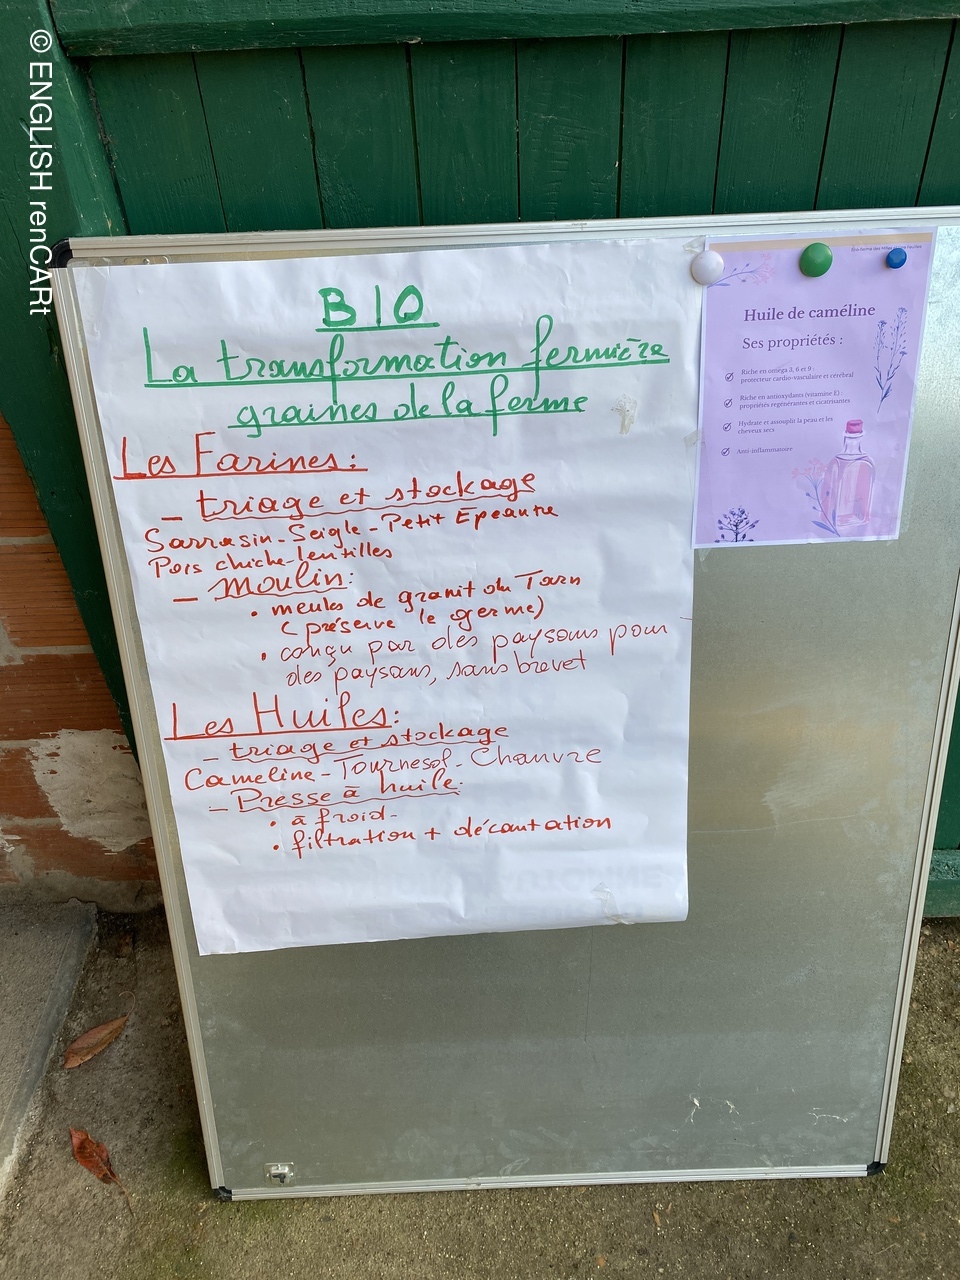 © ENGLISH renCARt
BIO
La transformation fermière
graines de la ferme
Les Farines:
- triage et stockage
Sarrasin - Seigle - Petit Epeautre
Pois chiche - lentilles
- Moulin:
• meules de granit du Tarn
(préserve le germe)
• conçu par des paysans pour
des paysans, sans brevet
Les Huiles:
- triage et stockage
Cameline - Tournesol - Chanvre
- Presse à huile:
• à froid-
• filtration + décantation
Huile de caméline
Ses propriétés :
Riche en oméga 3, 6 et 9 :
protecteur cardio-vasculaire et cérébral
Riche en antioxydants (vitamine E) :
propriétés regénérantes et cicatrisantes
Hydrate et assouplit la peau et les
cheveux secs
Anti-inflammatoire